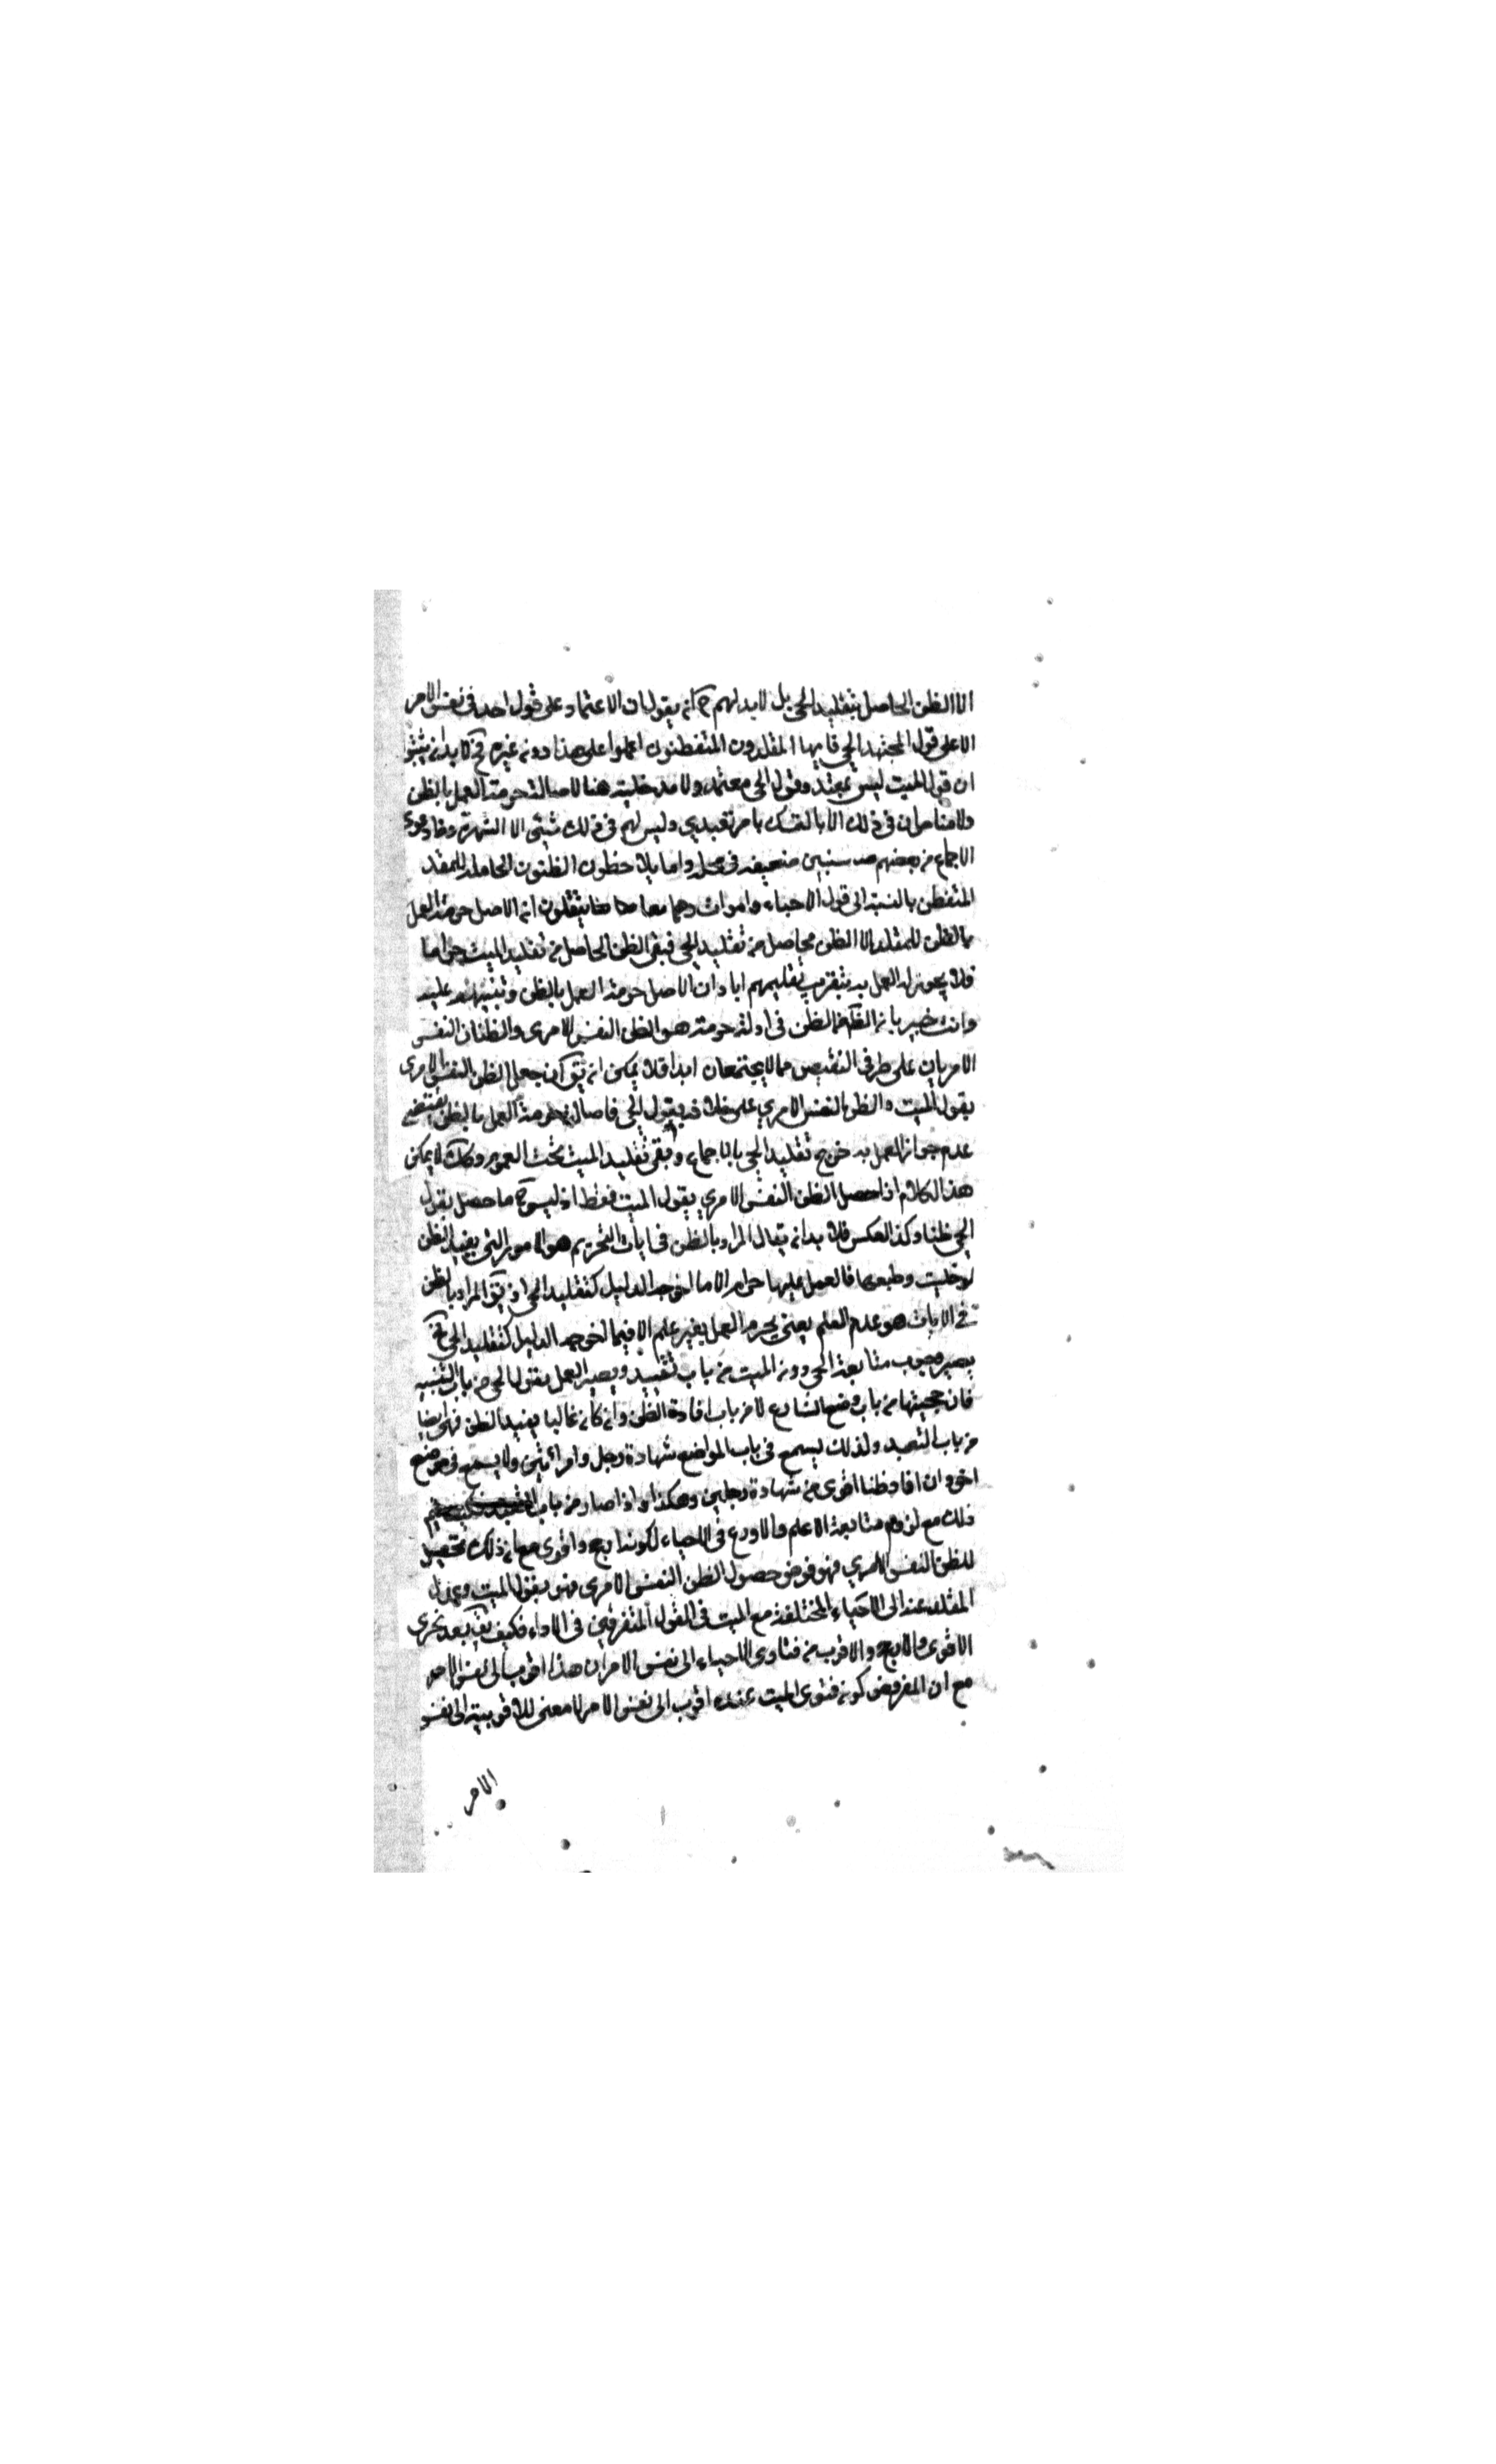 الا الظن الحاصل بتقليد الحي بل لا بد لهم ح ان يقولوا ان الاعتماد على قول احد في نفس الامر
الا على قول المجتهد الحي فايها المقلدون المتفطنون اعملوا على هذا دون غيره فح لا بد ان يثبتوا
ان قول الميت ليس بمعتمد وقول الحي معتمد ولا مدخلية هنا لاصالة حرمة العمل بالظن
ولا مناص لهم في ذلك الا بالتمسك بامر تعبدي وليس لهم في ذلك شيئ الا الشهرة ودعوى
الاجماع من بعضهم ضعيفه في محله واما يلاحظون الظنون الحاصلة للمقلد
المتفطن بالنسبة الى قول الاحياء والاموات معا فيقولون ان الاصل حرمة العمل
بالظن للمقلد الا الظن الحاصل من تقليد الحي فبقي الظن الحاصل من تقليد الميت حراما
فلا يجوز له العمل به بتقريب تعليمهم اياه ان الاصل حرمة العمل بالظن وتنبيههم عليه
وانت خبير بان الظن في ادلة حرمته هو الظن النفس الامرى والظنان النفس
الامريان على طرفي النقيض مما لا يجتمعان ابدا فلا يمكن ان يق ان حصل الظن النفس الامرى
بقول الميت والظن النفس الامري على خلافه بقول الحي فاصالة حرمة العمل بالظن يقتضي
عدم جواز العمل به خرج تقليد الحي بالاجماع وبقي تقليد الميت تحت العموم وكك لا يمكن
هذا الكلام اذا حصل الظن النفس الامري بقول الميت فقط اذ ليس ح ما حصل بقول
الحي ظنا وكذا العكس فلا بد ان يقال المراد بالظن في ايات التحريم هو الامور التي يفيد الظن
لو خليت وطبعها فالعمل عليها حرام الا ما اخرجه الدليل كتقليد الحي او يق المراد بالظن
في الايات هو عدم العلم يعني يحرم العمل بغير علم الا فيما اخرجه الدليل كتقليد الحي فح
يصير وجوب متابعة الحي دون الميت من باب التعبد ويصير العمل بقول الحي من باب البينة
فان حجيتها من باب وضع الشارع لا من باب افادة الظن وان كان غالبا يفيد الظن فهي ايضا
من باب التعبد ولذلك يسمع في باب المواضع شهادة رجل وامراتين ولا يسمع في موضع
اخر وان افاد ظنا اقوى من شهادة رجلين وهكذا واذا صار من باب التعبد فكيف يتم
ذلك مع لزوم متابعة الاعلم والاورع في الاحياء لكونه ارجح واقوى مع ان ذلك تحصيل
للظن النفس الامري فهو فرض حصول الظن النفس الامرى فهو بقول الميت وعدول
المقلد عنه الى الاحياء المختلفة مع الميت في القول المتفرقين في الاراء فكيف يق بعد تحرى
الاقوى والارجح والاقرب من فتاوى الاحياء الى نفس الامر ان هذا اقرب الى نفس الامر
مع ان المفروض كون فتوى الميت عنده اقرب الى نفس الامر لا معنى للاقربية الى نفس
الامر